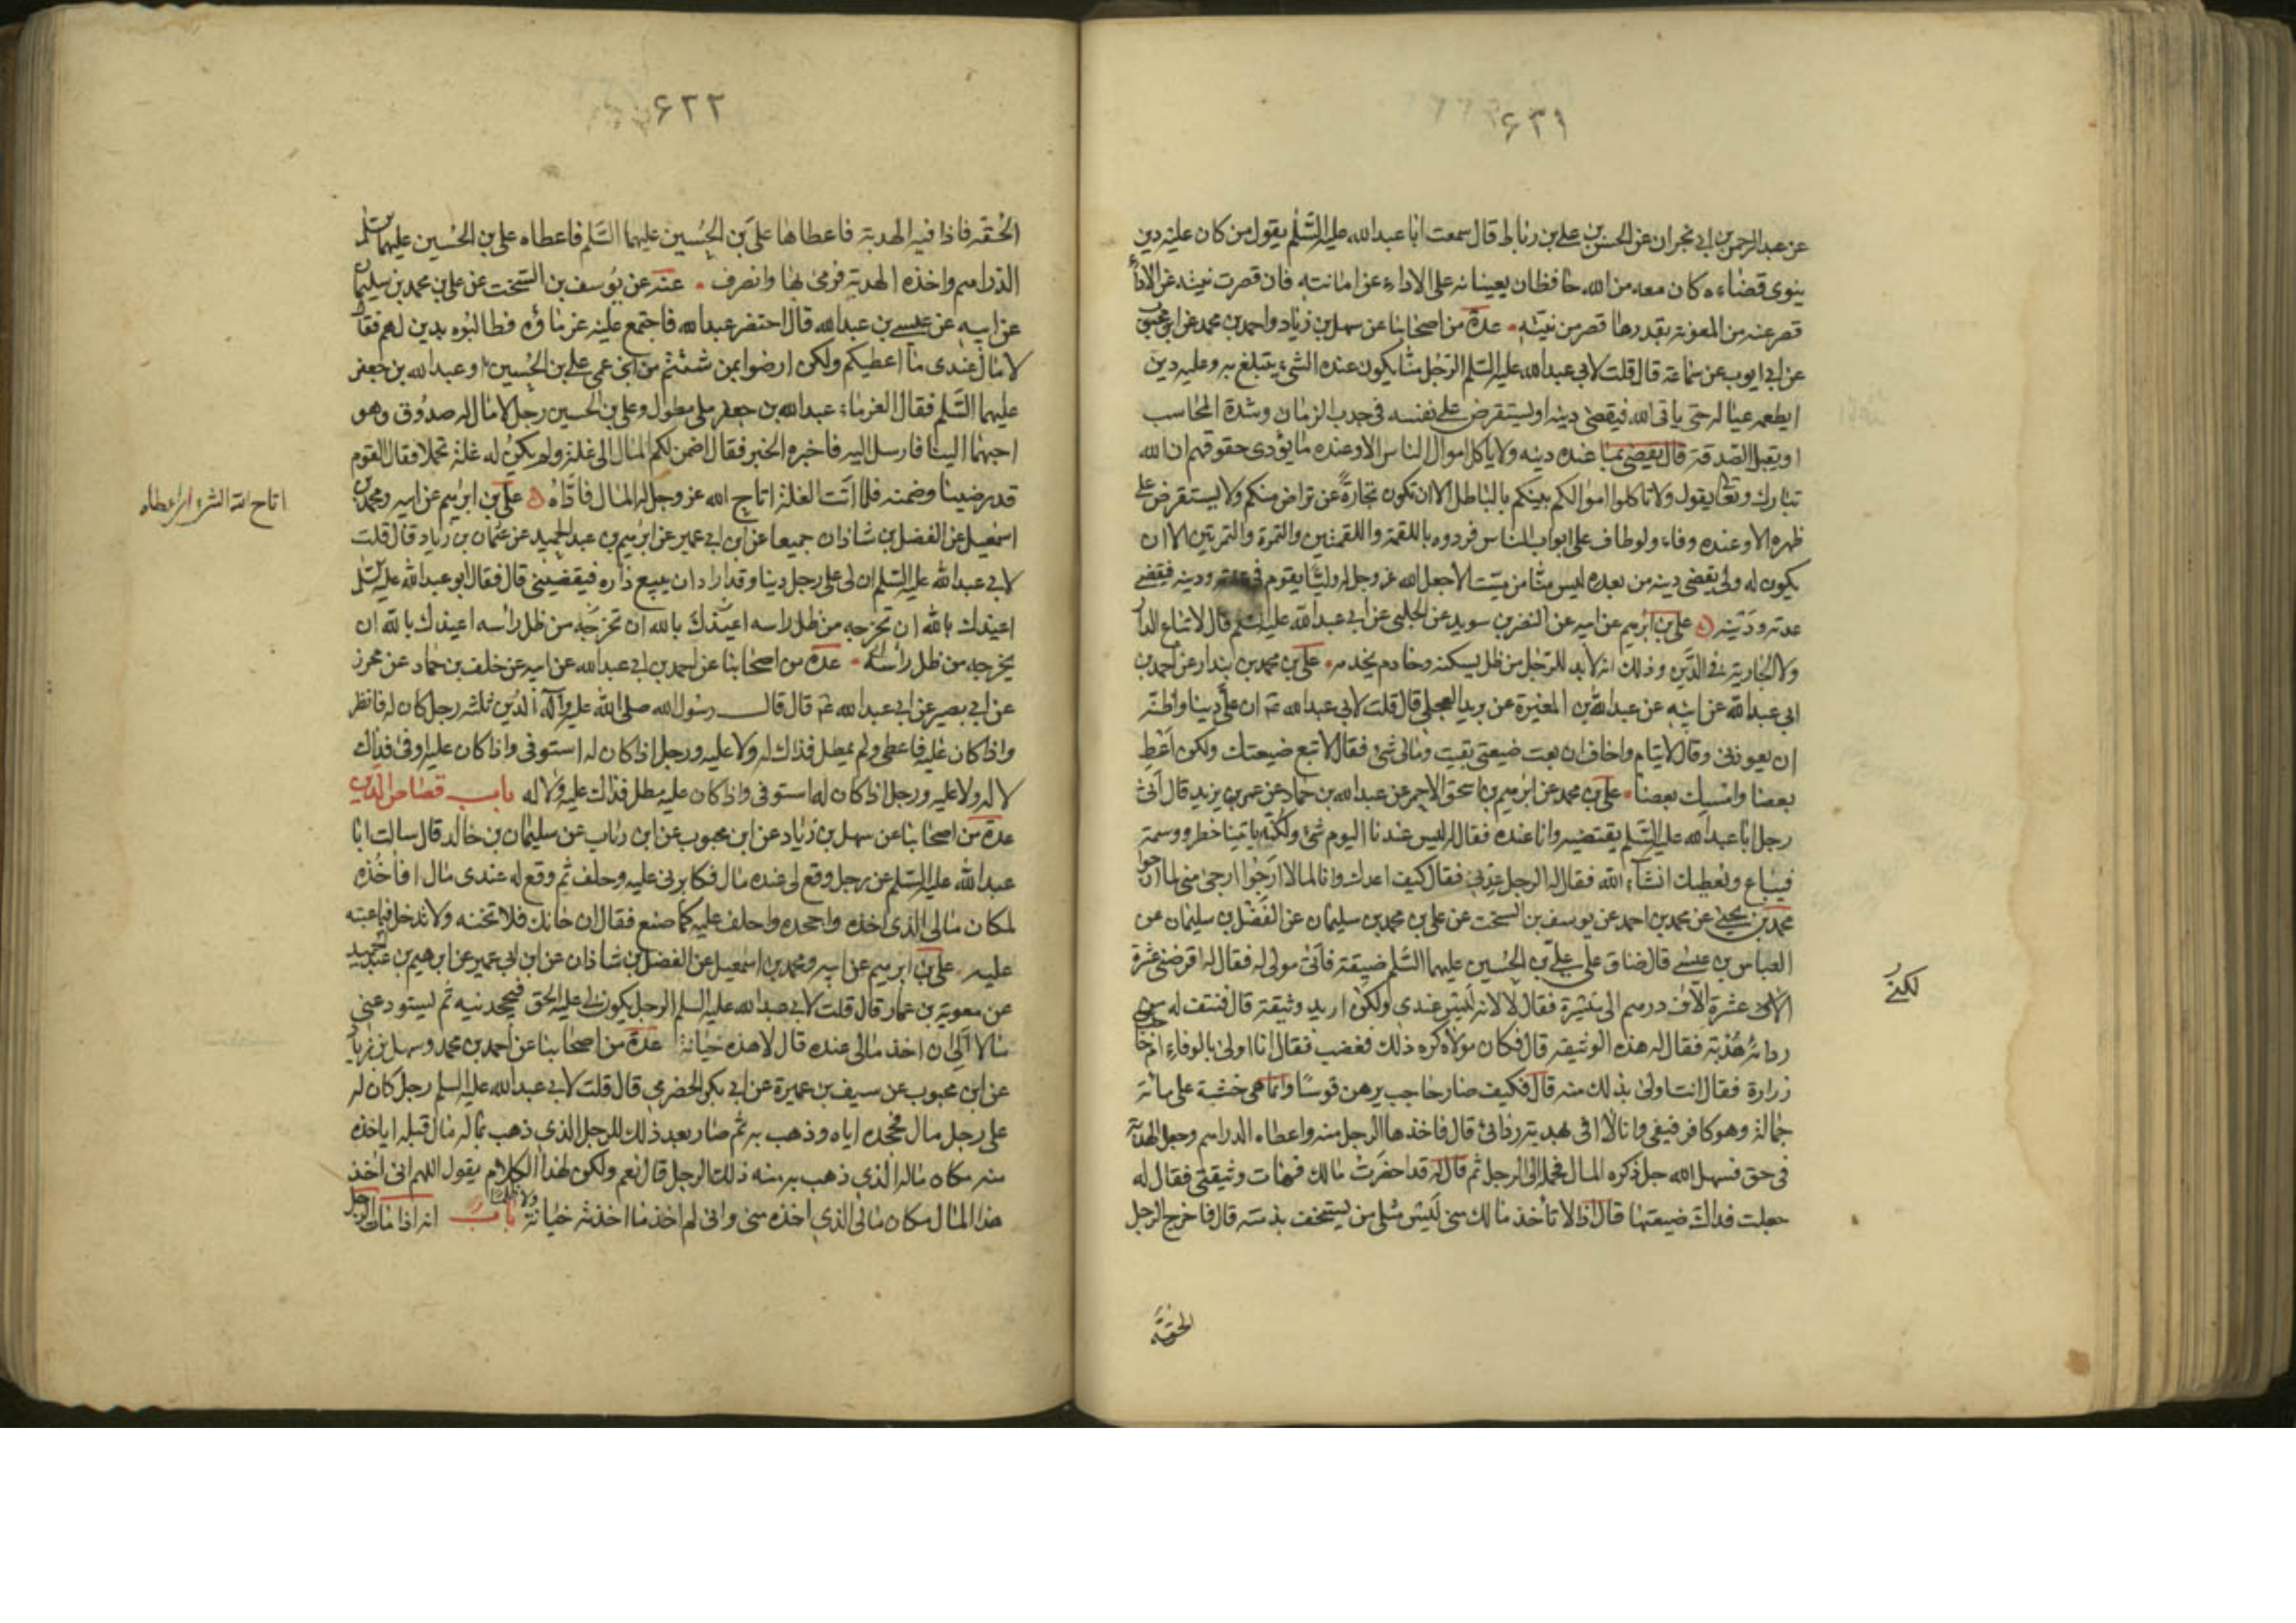 ۶۲۱
عن عبد الرحمن بن ابى نجران عن الحسن بن على بن رباط قال سمعت ابا عبد الله عليه السلم يقول من كان عليه دين
ينوى قضاءه كان معه من الله حافظان يعينانه على الاداء عن امانته فان قصرت نيته عن الاداء
قصر عنه من المعونة بقدر ما قصر من نيته • عدة من اصحابنا عن سهل بن زياد واحمد بن محمد عن ابن محبوب
عن ابى ايوب عن سماعة قال قلت لابى عبد الله عليه السلم الرجل منا يكون عنده الشىء يتبلغ به وعليه دين
ايطعمه عياله حتى ياتى الله فيقضى دينه او يستقرض على نفسه فى جدب الزمان وشدة المكاسب
او يقبل الصدقة قال يقضى بما عنده دينه ولا ياكل اموال الناس الا وعنده ما يؤدى حقوقهم ان الله
تبارك وتعا يقول ولا تاكلوا اموالكم بينكم بالباطل الا ان تكون تجارة عن تراض منكم ولا يستقرض على
ظهره الا وعنده وفاء ولو طاف على ابواب الناس فردوه باللقمة واللقمتين والتمرة والتمرتين الا ان
يكون له ولى يقضى دينه من بعده ليس منا من ميت الا جعل الله عز وجل له وليا يقوم فى عدته ودينه فيقضى
عدته ودينه ۵ على بن ابرهيم عن ابيه عن النضر بن سويد عن الحلبى عن ابى عبد الله عليه السلم قال لا تباع الدار
ولا الجارية فى الدين وذلك انه لا بد للرجل من ظل يسكنه وخادم يخدمه • على بن محمد بن بندار عن احمد بن
ابى عبد الله عن ابيه عن عبد الله بن المغيرة عن بريد العجلى قال قلت لابى عبد الله ع ان على دينا واظنه
ان يعوذنى وقال لايتام واخاف ان بعت ضيعتى بقيت ومالى شئ فقال لا تبع ضيعتك ولكن اعط
بعضا وامسك بعضا • على بن محمد عن ابرهيم بن اسحق الاحمر عن عبد الله بن حماد عن عمر بن يزيد قال اتى
رجل ابا عبد الله عليه السلم يقتضيه وانا عنده فقال له ليس عندنا اليوم شئ ولكنه ياتينا خطر ووسمة
فيباع ونعطيك انشاء الله فقال له الرجل عدنى فقال كيف اعدك وانا لما لا ارجوا ارجى منى لما ارجوا
محمد بن يحيى عن محمد بن احمد عن يوسف بن السخت عن على بن محمد بن سليمان عن الفضل بن سليمان عن
العباس بن عيسى قال ضاق على على بن الحسين عليهما السلم ضيقة فاتى مولى له فقال له اقرضنى عشرة
الاف عشرة الاف درهم الى ميسرة فقال لا لانه ليس عندى ولكن اريد وثيقة قال فنتف له من
ردائه هدبة فقال له هذه الوثيقة قال فكان مولاه كره ذلك فغضب فقال انا اولى بالوفاء ام حاجب بن
زرارة فقال انت اولى بذلك منه قال فكيف صار حاجب يرهن قوسا وانما هى خشبة على مائة
حمالة وهو كافر فيفى وانا لا افى بهدبة ردائى قال فاخذها الرجل منه واعطاه الدراهم وجعل الهدبة
فى حق فسهل الله جل ذكره المال فحمله الى الرجل ثم قال له قد احضرت مالك فهات وثيقتى فقال له
جعلت فداك ضيعتها قال اذا لا تأخذ مالك منى ليس مثلى من يستخف بذمته قال فاخرج الرجل
لكنى
الحقة
۶۲۲
الحقة فاذا فيه الهدبة فاعطاها على بن الحسين عليهما السلم فاعطاه على بن الحسين عليهما السلم
الدراهم واخذه الهدبة فرمى بها وانصرف • عنه عن يوسف بن السخت عن على بن محمد بن سليمان
عن ابيه عن عيسى بن عبد الله قال احتضر عبد الله فاجتمع عليه غرماؤه فطالبوه بدين لهم فقال
لا مال عندى ما اعطيكم ولكن ارضوا بمن شئتم من ابنى عمى على بن الحسين و عبد الله بن جعفر
عليهما السلم فقال الغرماء عبد الله بن جعفر ملى مطول وعلى بن الحسين رجل لا مال له صدوق وهو
احبهما الينا فارسل اليه فاخبره الخبر فقال اضمن لكم المال الى غلة ولم يكن له غلة تجملا فقال القوم
قد رضينا وضمنه فلما اتت الغلة اتاح الله عز وجل له المال فاداه ۵ على بن ابرهيم عن ابيه ومحمد بن
اسمعيل عن الفضل بن شاذان جميعا عن ابن ابى عمير عن ابرهيم بن عبد الحميد عن عثمان بن زياد قال قلت
لابى عبد الله عليه السلم ان لى على رجل دينا وقد اراد ان يبيع داره فيقضينى قال فقال ابو عبد الله عليه السلم
اعيذك بالله ان تخرجه من ظل راسه اعيذك بالله ان تخرجه من ظل راسه اعيذك بالله ان
يخرجه من ظل راسه • عدة من اصحابنا عن احمد بن ابى عبد الله عن ابيه عن خلف بن حماد عن محرز
عن ابى بصير عن ابى عبد الله ع قال قال رسول الله صلى الله عليه وآله الدين ثلثه رجل كان له فانظر
واذا كان عليه فاعطى ولم يمطل فذاك له ولا عليه ورجل اذا كان له استوفى واذا كان عليه اوفى فذاك
لا له ولا عليه ورجل اذا كان له استوفى واذا كان عليه مطل فذاك عليه ولا له باب قصاص الدين
عدة من اصحابنا عن سهل بن زياد عن ابن محبوب عن ابن رئاب عن سليمان بن خالد قال سالت ابا
عبد الله عليه السلم عن رجل وقع لى عنده مال فكابرنى عليه وحلف ثم وقع له عندى مال افاخذه
لمكان مالى الذى اخذه واجحده واحلف عليه كما صنع فقال ان خانك فلا تخنه ولا تدخل فيما عبته
عليه • على بن ابرهيم عن ابيه ومحمد بن اسمعيل عن الفضل بن شاذان عن ابن ابى عمير عن ابرهيم بن عبد الحميد
عن معوية بن عمار قال قلت لابى عبد الله عليه السلم الرجل يكون لى عليه الحق فيجحدنيه ثم يستودعنى
مالا الى ان اخذ مالى عنده قال لا هذه خيانة عدة من اصحابنا عن احمد بن محمد وسهل بن زياد
عن ابن محبوب عن سيف بن عميرة عن ابى بكر الحضرمى قال قلت لابى عبد الله عليه السلم رجل كان له
على رجل مال فجحده اياه وذهب به ثم صار بعد ذلك للرجل الذى ذهب بماله مال قبله اياخذه
منه مكان ماله الذى ذهب به منه ذلك الرجل قال نعم ولكن لهذا الكلام يقول اللهم انى اخذ
هذا المال مكان مالى الذى اخذه منى وانى لم اخذ ما اخذته خيانة ولا ظلما باب انه اذا مات الرجل
اتاح لله الشىء اى اعطاه